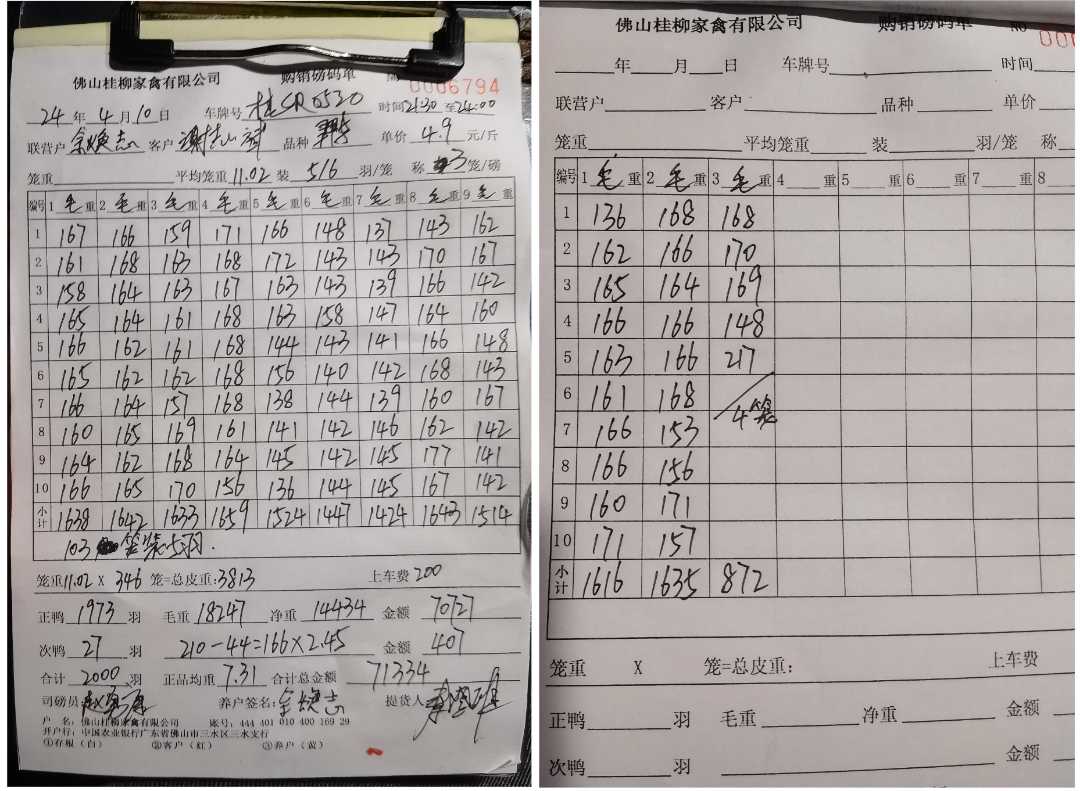 佛山桂柳家禽有限公司 购销磅码单 № 0006794
24 年 4 月 10 日 车牌号 桂CR0530 时间 21:30 至 24:00
联营户 余焕志 客户 品种 单价 4.9 元/斤
笼重 平均笼重 11.02 装 5/6 羽/笼 称 3 笼/磅
编号 1 毛 重 2 毛 重 3 毛 重 4 毛 重 5 毛 重 6 毛 重 7 毛 重 8 毛 重 9 毛 重
1 167 166 159 171 166 148 137 143 162
2 161 168 163 168 172 143 143 170 167
3 158 164 163 167 163 143 139 166 142
4 165 164 161 168 163 158 147 164 160
5 166 162 161 168 144 143 141 166 148
6 165 162 162 168 156 140 142 168 143
7 166 164 157 168 138 144 139 160 167
8 160 165 169 161 141 142 146 162 142
9 164 162 168 164 145 142 145 177 141
10 166 165 170 156 136 144 145 167 142
小计 1638 1642 1633 1659 1524 1447 1424 1643 1514
103 笼装5羽.
笼重 11.02 X 346 笼=总皮重: 3813 上车费 200
正鸭 1973 羽 毛重 18247 净重 14434 金额 70727
次鸭 27 羽 210-44=166×2.45 金额 407
合计 2000 羽 正品均重 7.31 合计总金额 71334
司磅员: 养户签名: 余焕志 提货人
户 名: 佛山桂柳家禽有限公司 账号: 444 401 010 400 169 29
开户行: 中国农业银行广东省佛山市三水区三水支行
①存根（白） ②客户（红） ③养户（黄）
佛山桂柳家禽有限公司 购销磅码单 № 000
年 月 日 车牌号 时间
联营户 客户 品种 单价
笼重 平均笼重 装 羽/笼 称
编号 1 毛 重 2 毛 重 3 毛 重 4 重 5 重 6 重 7 重 8
1 136 168 168
2 162 166 170
3 165 164 169
4 166 166 148
5 163 166 217
6 161 168
4笼
7 166 153
8 166 156
9 160 171
10 171 157
小计 1616 1635 872
笼重 X 笼=总皮重: 上车费
正鸭 羽 毛重 净重 金额
次鸭 羽 金额